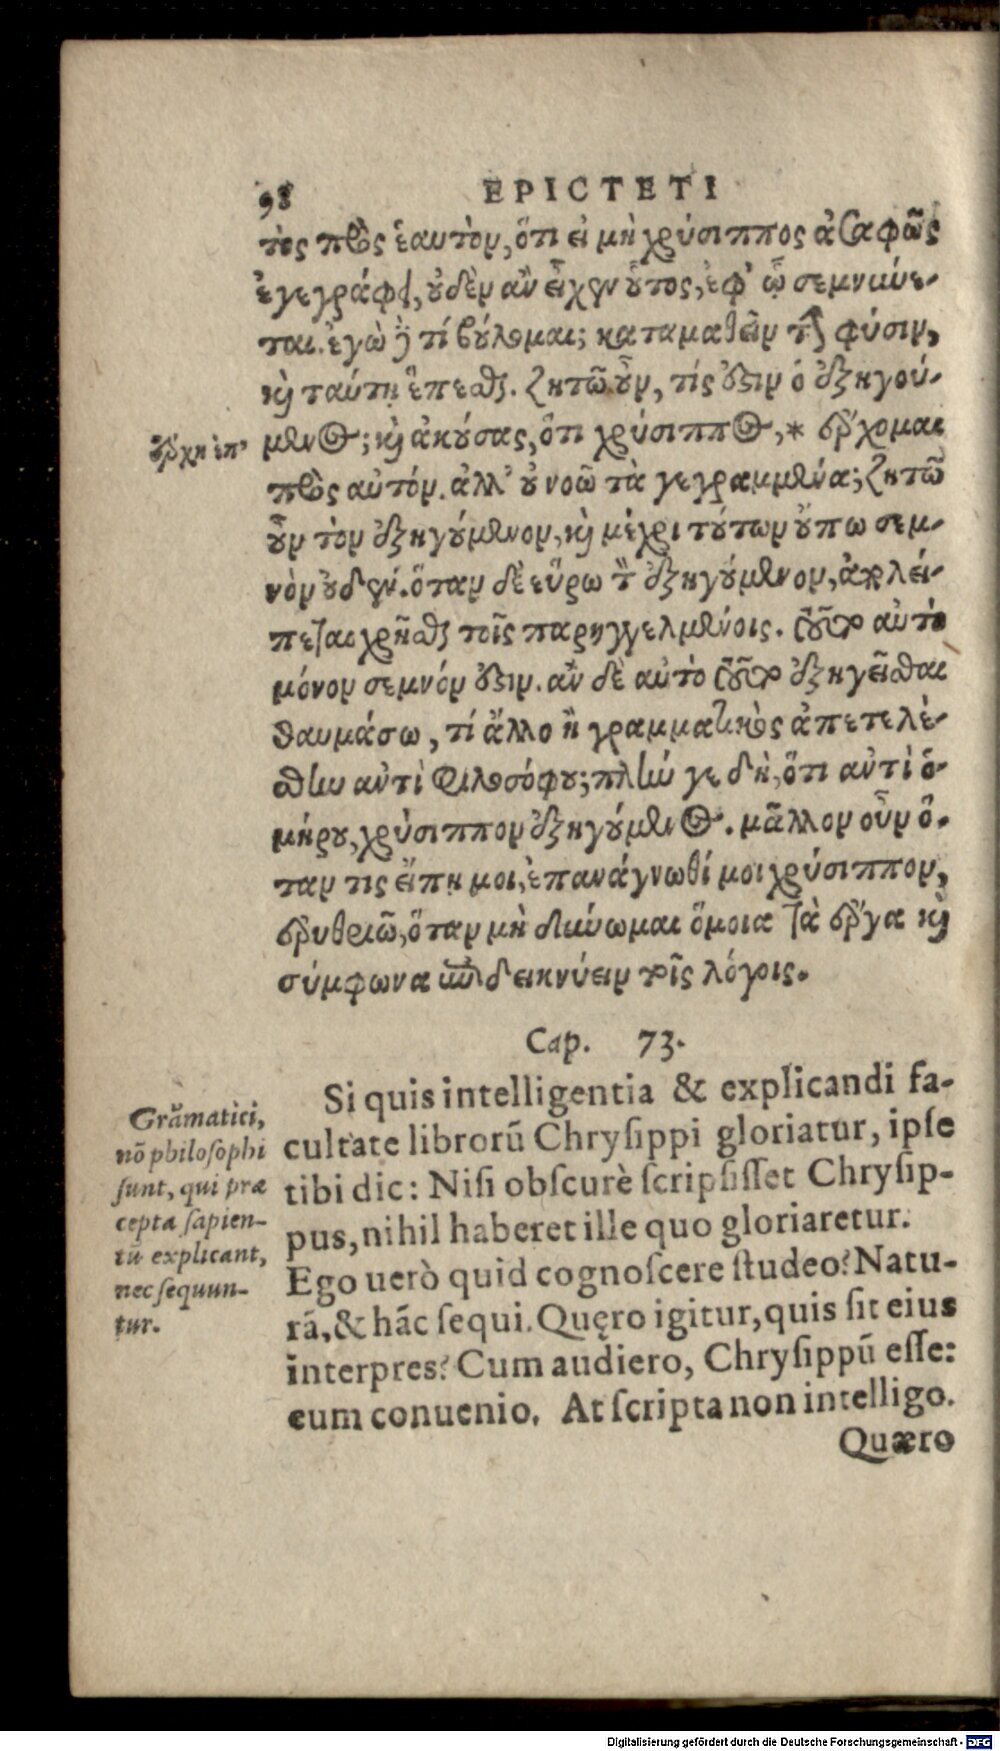 98 EPICTETI
τὸς πρὸς ἑαυτὸν, ὅτι εἰ μὴ χρύσιππος ἀσαφῶς
ἐγεγράφει, οὐδὲν ἂν εἶχεν οὗτος, ἐφ᾽ ᾧ σεμνύνε-
ται. ἐγὼ δὲ τί βούλομαι; καταμαθεῖν τὴν φύσιν,
καὶ ταύτῃ ἕπεσθαι. ζητῶ οὖν, τίς ἐστιν ὁ ἐξηγού-
μενος; καὶ ἀκούσας, ὅτι χρύσιππος, * ἔρχομαι
ἔρχῃ ἐπ᾽
πρὸς αὐτόν. ἀλλ᾽ οὐ νοῶ τὰ γεγραμμένα; ζητῶ
οὖν τὸν ἐξηγούμενον, καὶ μέχρι τούτων οὔπω σεμ-
νὸν οὐδέν. ὅταν δὲ εὕρω τὸν ἐξηγούμενον, ἀπολεί-
πεται χρῆσθαι τοῖς παρηγγελμένοις. τοῦτο αὐτὸ
μόνον σεμνόν ἐστιν. ἂν δὲ αὐτὸ τοῦτο ἐξηγεῖσθαι
θαυμάσω, τί ἄλλο ἢ γραμματικὸς ἀπετελέ-
σθην ἀντὶ φιλοσόφου; πλήν γε δὴ, ὅτι ἀντὶ ὁ-
μήρου, χρύσιππον ἐξηγούμενος. μᾶλλον οὖν ὅ-
ταν τις εἴπῃ μοι, ἐπανάγνωθί μοι χρύσιππον,
ἐρυθριῶ, ὅταν μὴ δύνωμαι ὅμοια τὰ ἔργα καὶ
σύμφωνα ἐπιδεικνύειν τοῖς λόγοις.
Cap. 73.
Si quis intelligentia & explicandi fa-
cultate librorũ Chrysippi gloriatur, ipse
tibi dic: Nisi obscurè scripsisset Chrysip-
pus, nihil haberet ille quo gloriaretur.
Ego uerò quid cognoscere studeo? Natu-
rã, & hãc sequi. Quęro igitur, quis sit eius
interpres? Cum audiero, Chrysippũ esse:
eum conuenio. At scripta non intelligo.
Quæro
Grãmatici,
nõ philosophi
sunt, qui præ
cepta sapien-
tũ explicant,
nec sequun-
tur.
Digitalisierung gefördert durch die Deutsche Forschungsgemeinschaft - DFG